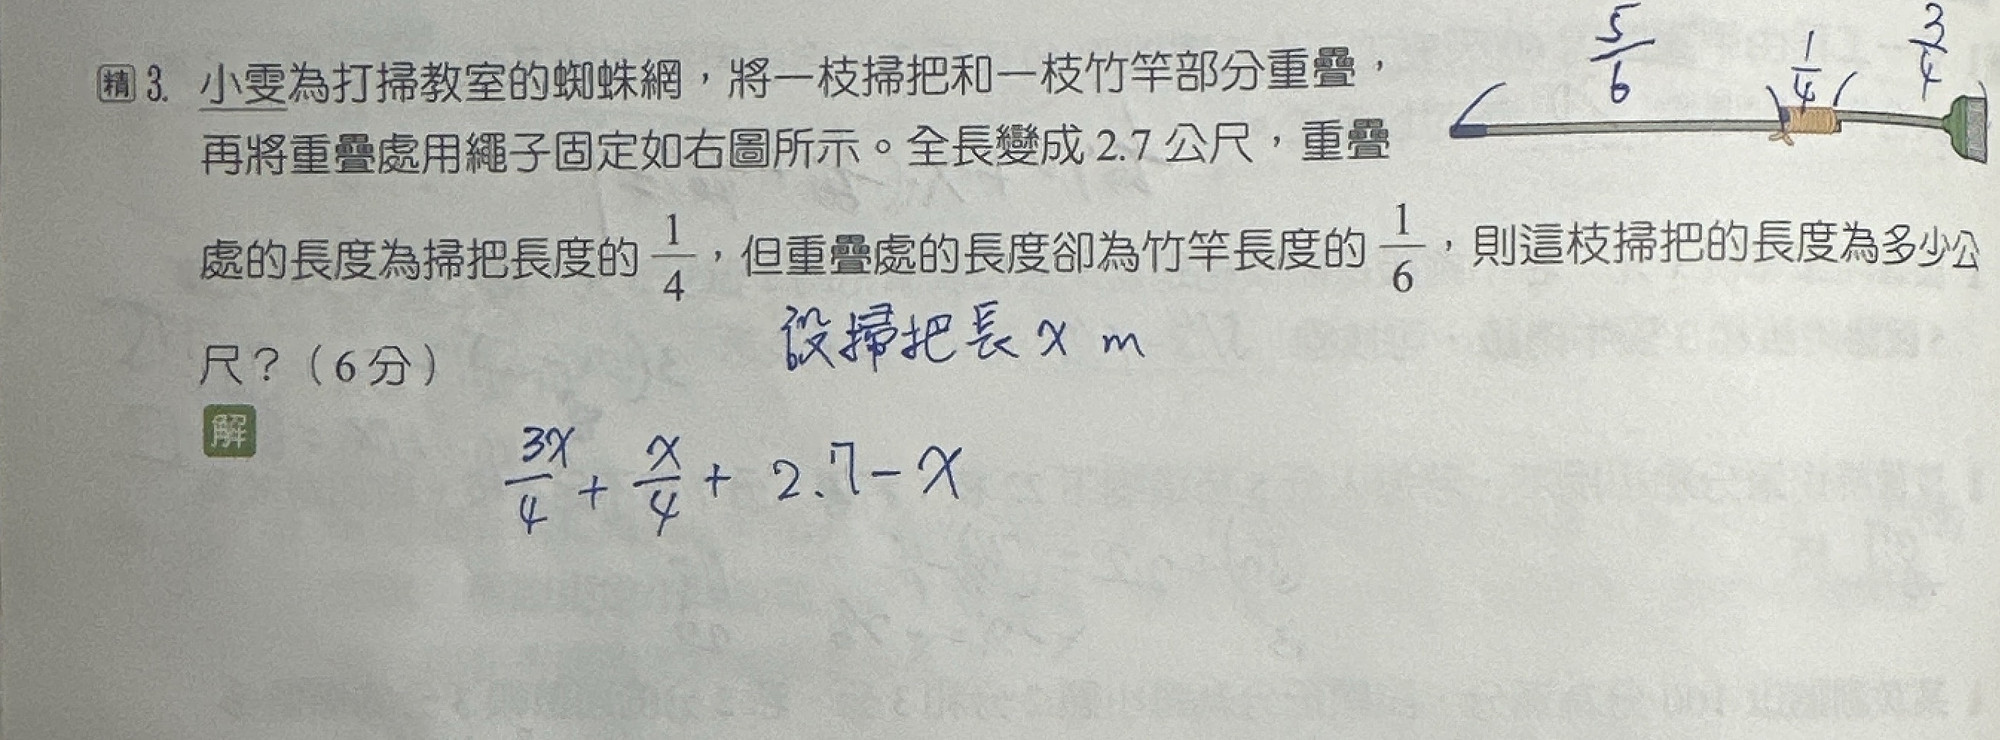 精 3. 小雯為打掃教室的蜘蛛網，將一枝掃把和一枝竹竿部分重疊，
再將重疊處用繩子固定如右圖所示。全長變成 2.7 公尺，重疊
處的長度為掃把長度的 1/4，但重疊處的長度卻為竹竿長度的 1/6，則這枝掃把的長度為多少公
尺？（6 分）
5/6 1/4 3/4
設掃把長 x m
解
3x/4 + x/4 + 2.7 - x